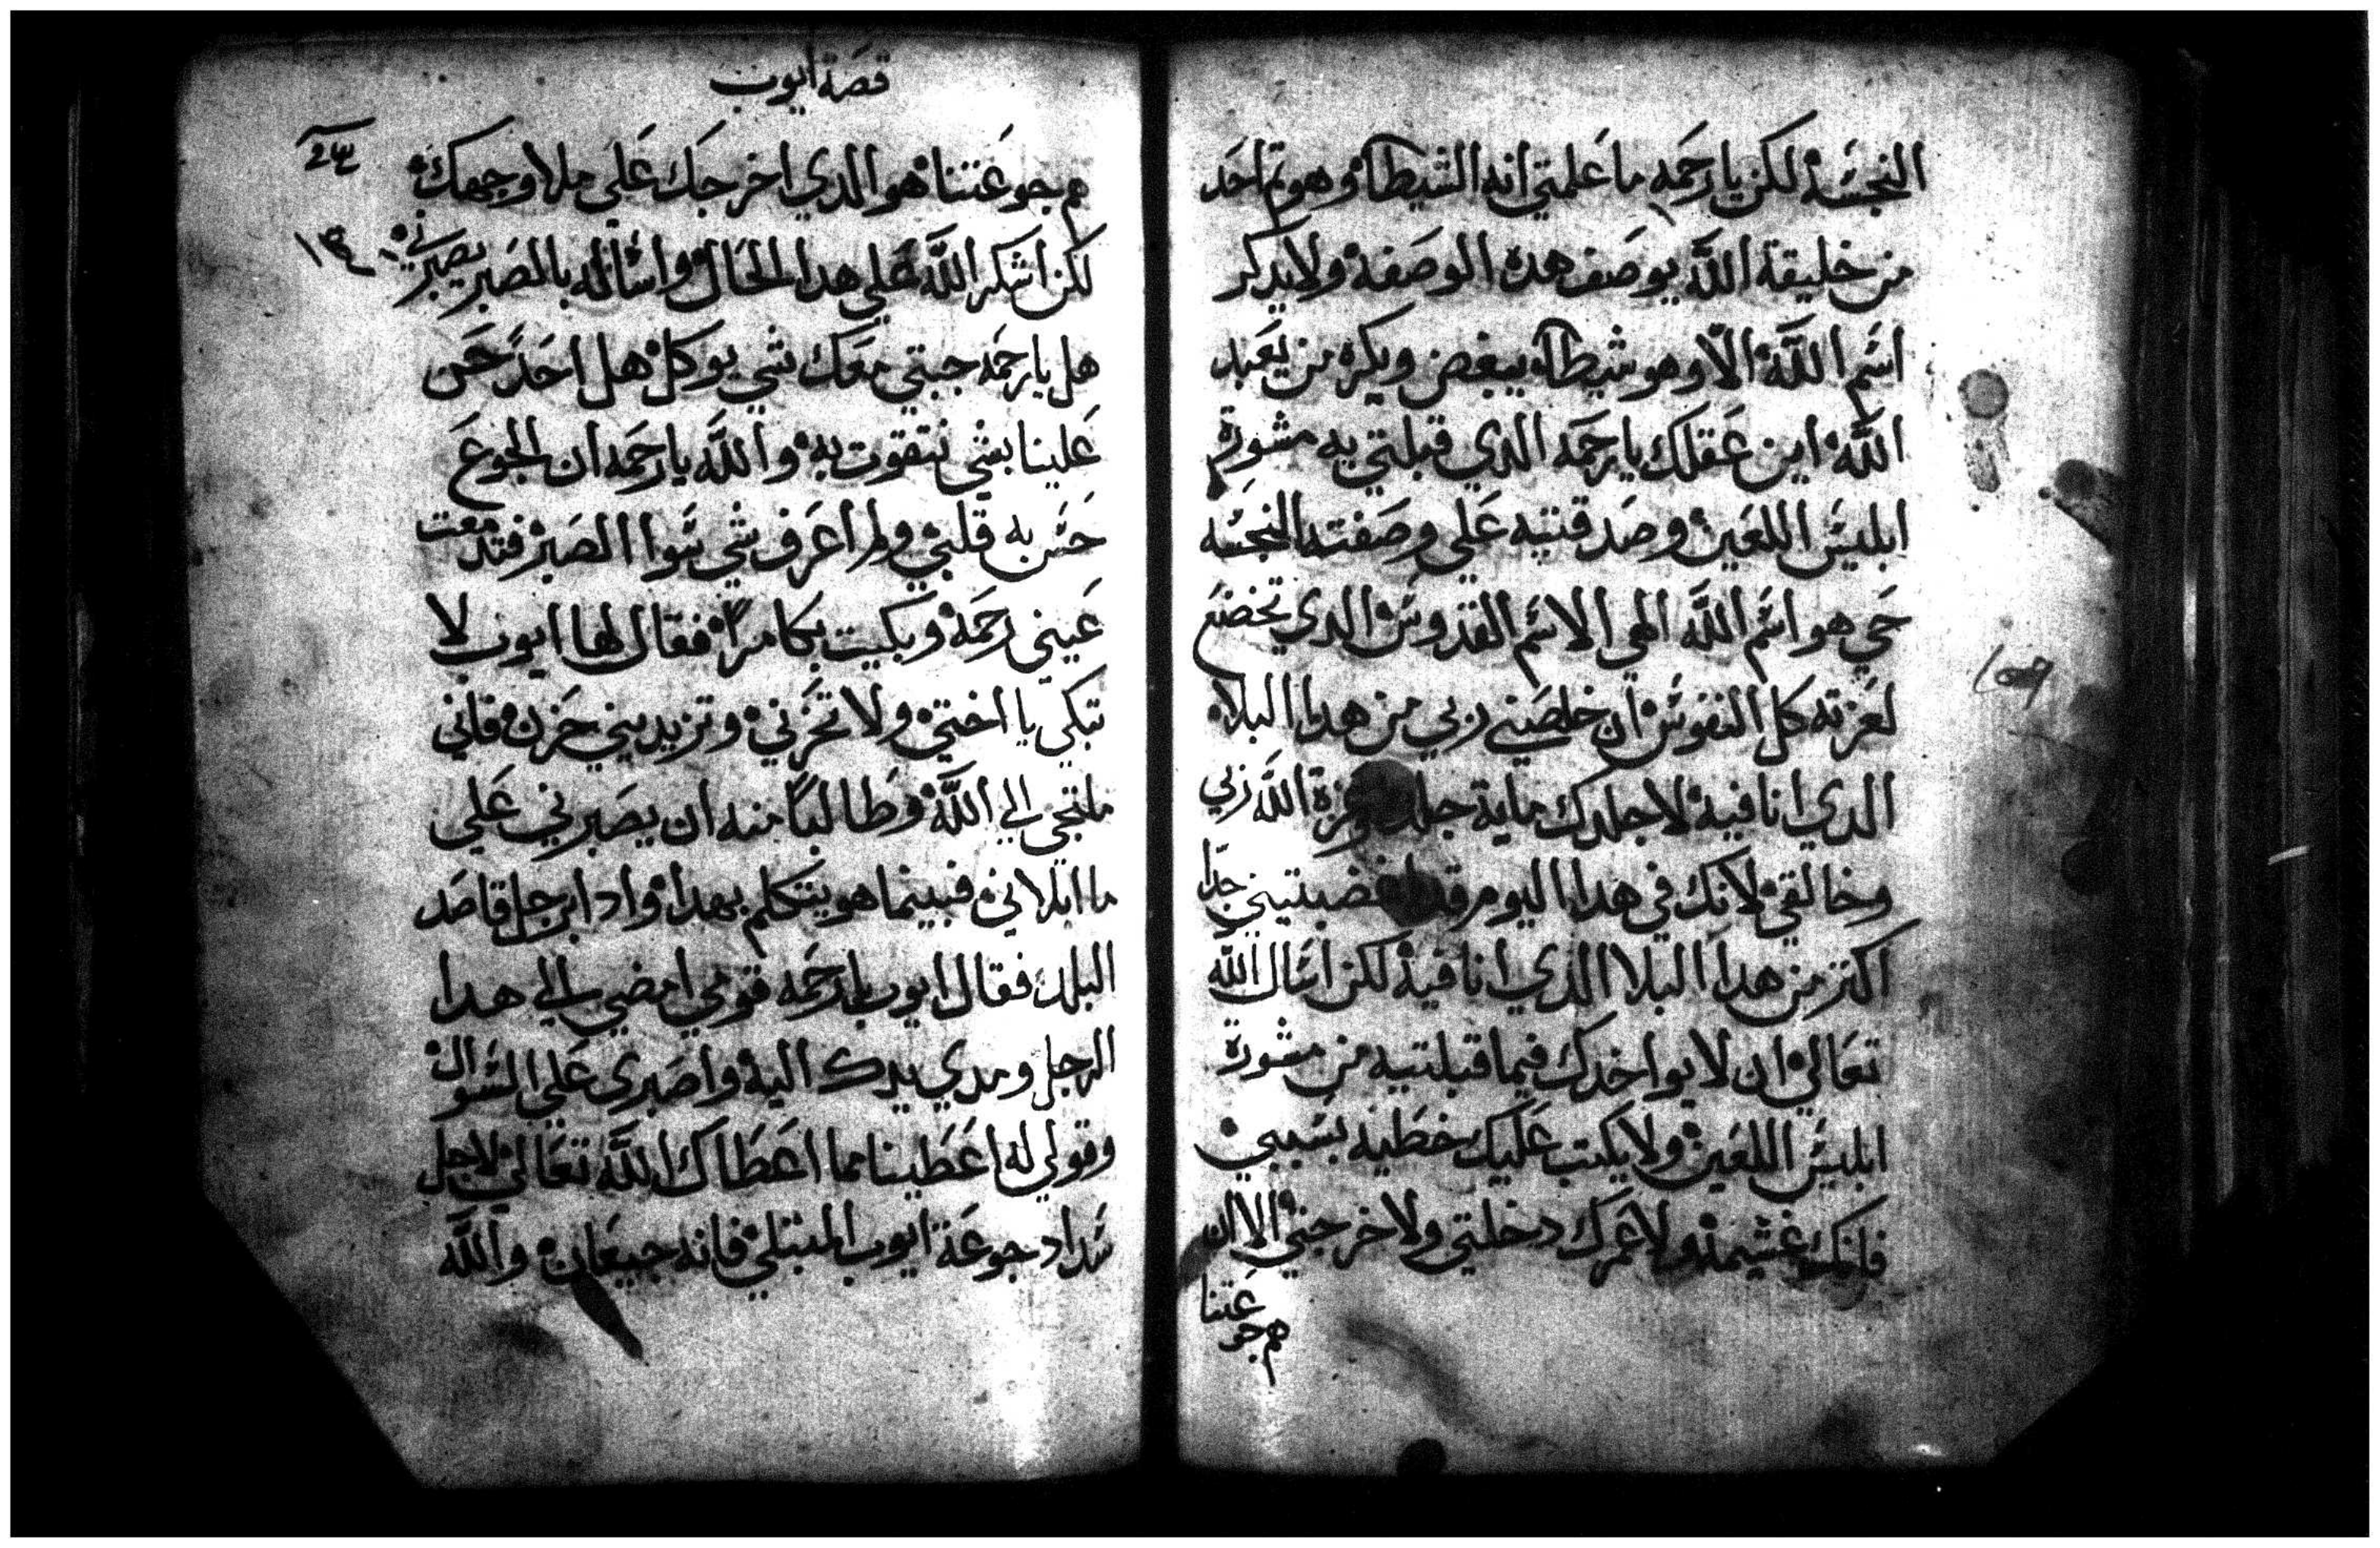 النجسه لكن يا رحمه ما علمتي انه الشيطان وهو تم احد
من خليقة الله يوصف هده الوصفه ولا يدكر
اسم الله الا وهو شيطان يبغض ويكره من يعبد
الله اين عقلك يا رحمه الدي قبلتي به مشورة
ابليس اللعين وصدقتيه علي وصفته النجسه
حي هو اسم الله الهي الاسم القدوس الدي تخضع
لعزته كل النفوس ان خلصني ربي من هدا البلا
الدي انا فيه لاجلدك ماية جلده وعزة الله ربي
وخالقي لانك في هدا اليوم قد اغضبتيني جدا
اكتر من هدا البلا الدي انا فيه لكن اسال الله
تعالي ان لا يواخدك فيما قبلتيه من مشورة
ابليس اللعين ولا يكتب عليك خطيه بسببي
فانك غشيمه ولا عمرك دخلتي ولا خرجتي الا الان
هم جوعتنا
قصة ايوب
هم جوعتنا هو الدي اخرجك علي ملا وجهك
لكن اشكر الله علي هدا الحال واساله بالصبر يصبرني
هل يا رحمه جبتي معك شي يوكل هل احد حن
علينا بشي نتقوت به والله يا رحمه ان الجوع
حس به قلبي ولم اعرف شي سوا الصبر فتدمعت
عيني رحمه وبكيت بكا مرا فقال لها ايوب لا
تبكي يا اختي ولا تحزني وتزيديني حزن فاني
ملتجي الي الله وطالبا منه ان يصبرني علي
ما ابلاني فبينما هو يتكلم بهدا وادا برجل قاصد
البلد فقال ايوب يا رحمه قومي امضي الي هدا
الرجل ومدي يدك اليه واصبري علي السوال
وقولي له اعطينا مما اعطاك الله تعالي لاجل
سداد جوعة ايوب المبتلي فانه جيعان والله